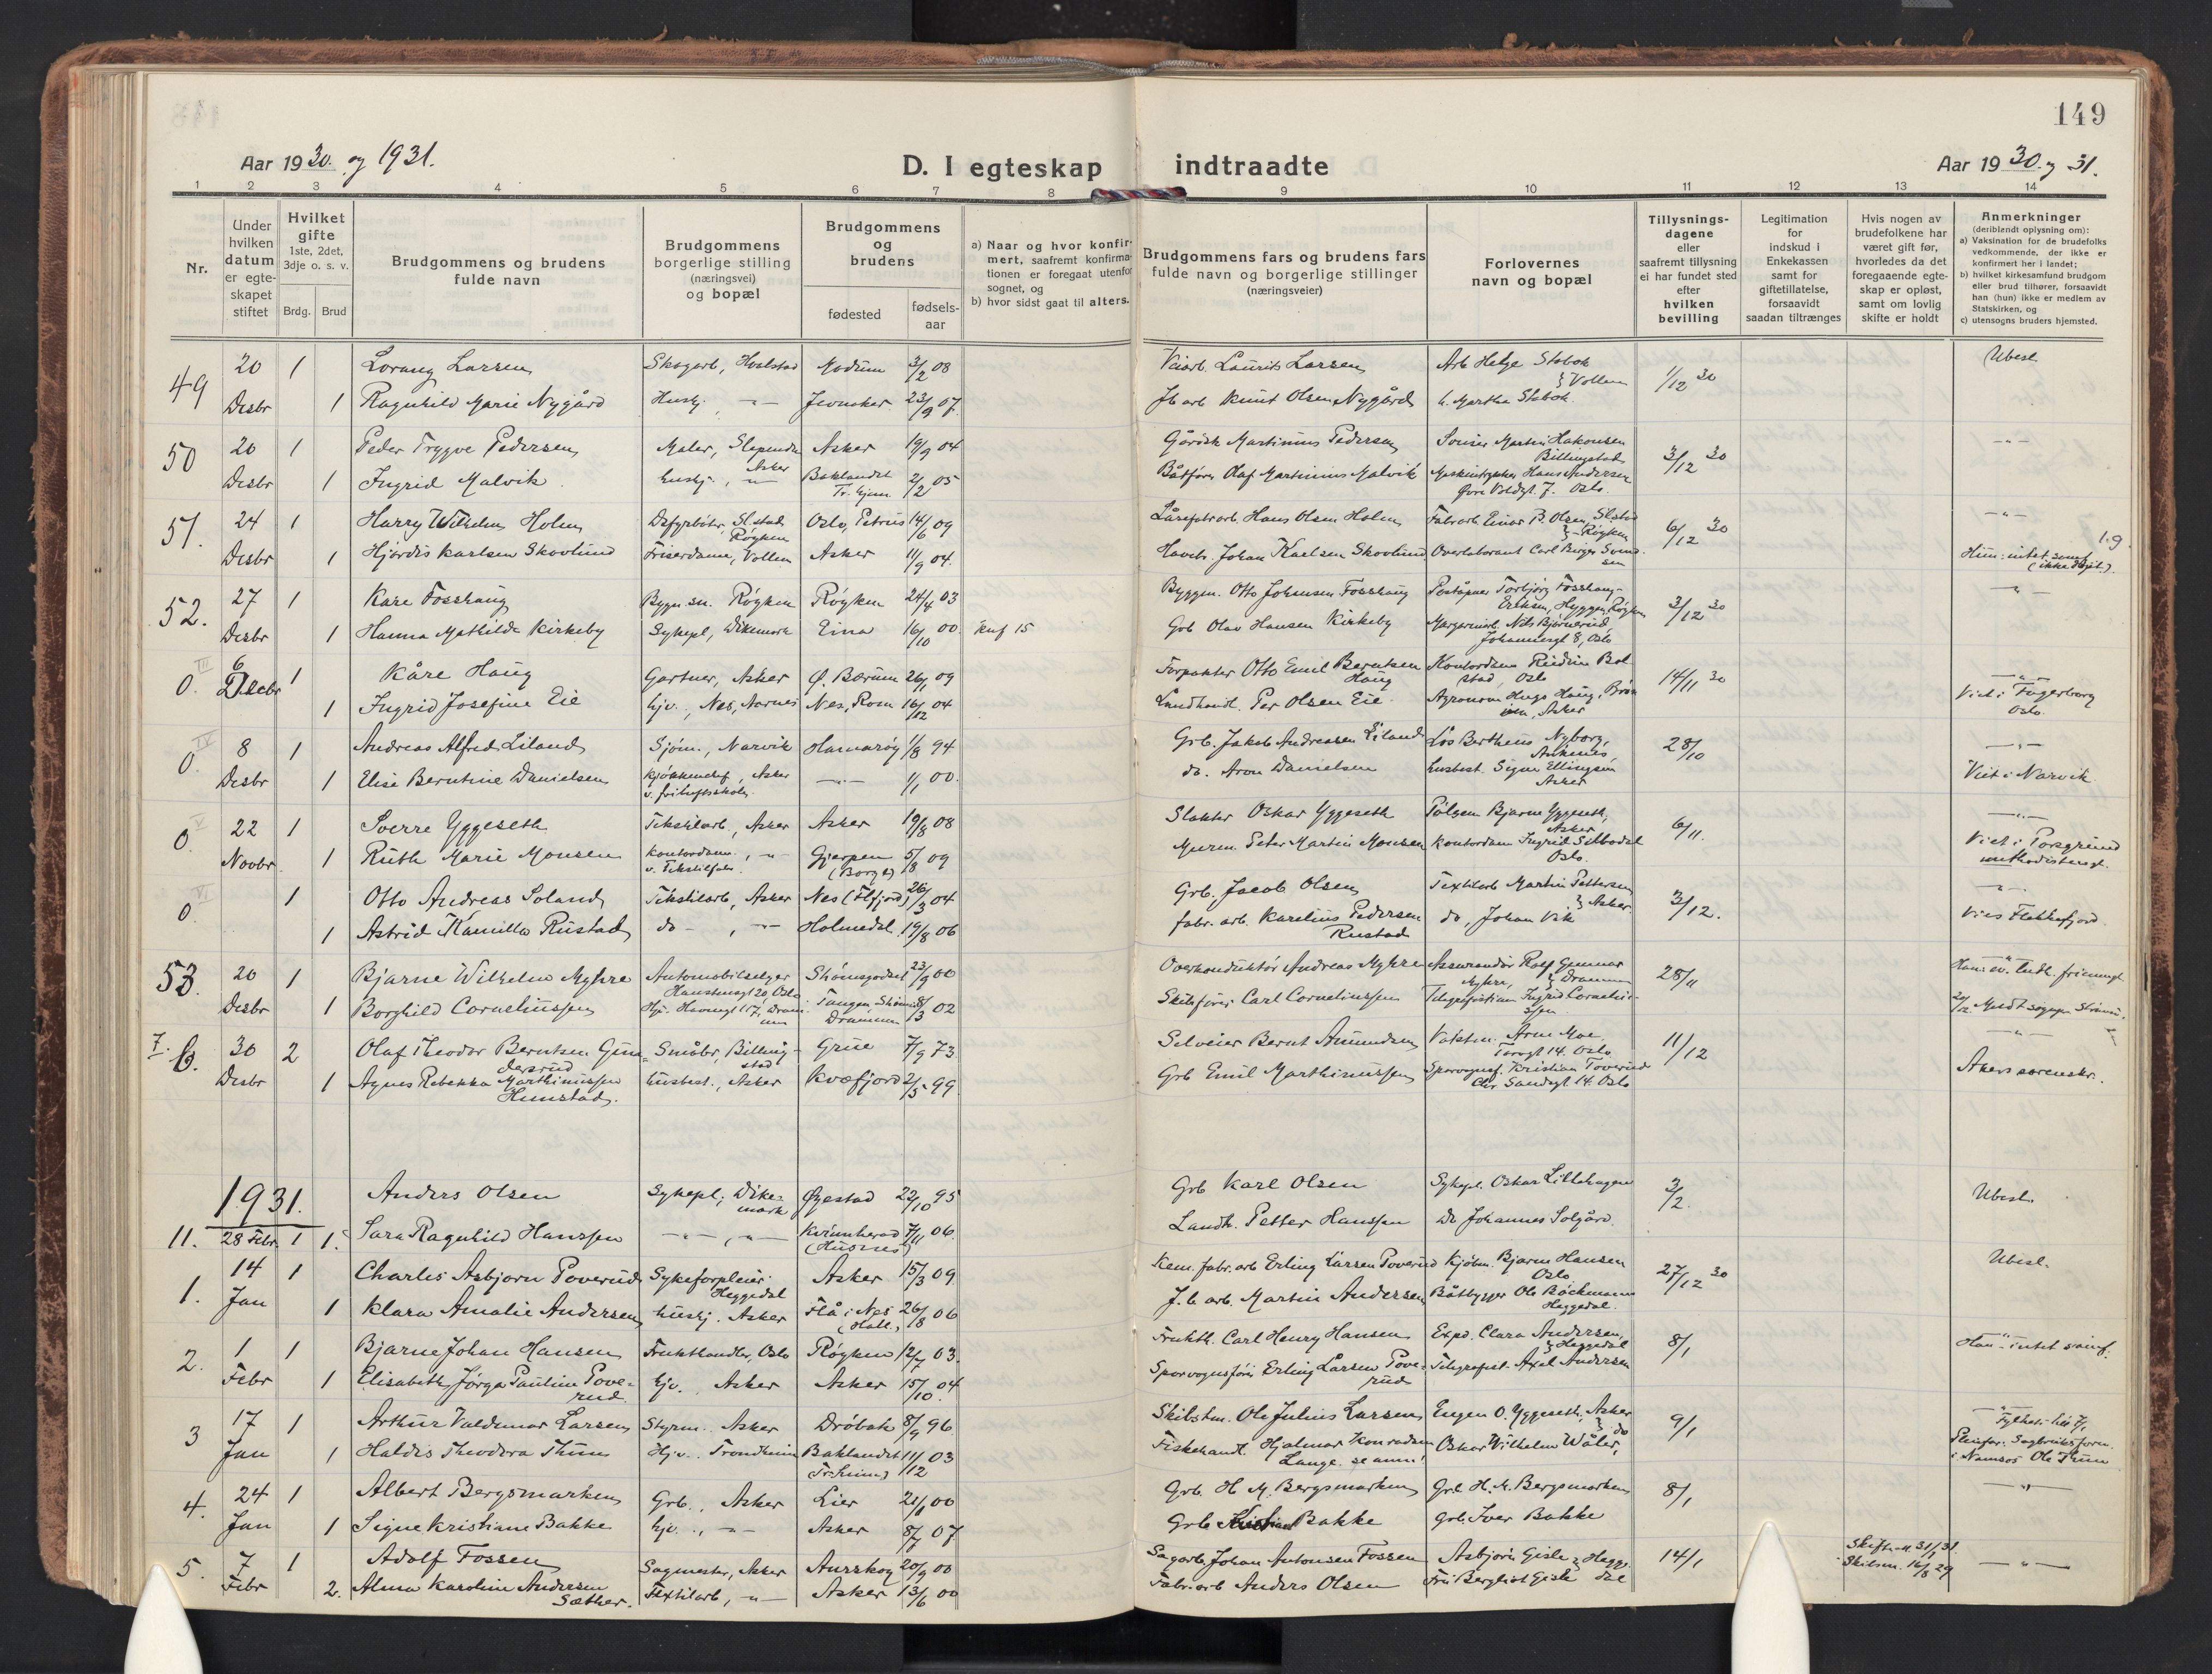 149
Aar 1930 og 1931.
D. I egteskap indtraadte
Aar 1930 og 31.
1 2 3 4 5 6 7 8 9 10 11 12 13 14
Nr.
Under hvilken datum er egteskapet stiftet
Hvilket gifte 1ste, 2det, 3dje o. s. v.
Brdg. Brud
Brudgommens og brudens fulde navn
Brudgommens borgerlige stilling (næringsvei) og bopæl
Brudgommens og brudens
fødested
fødsels-aar
a) Naar og hvor konfirmert, saafremt konfirmationen er foregaat utenfor sognet, og
b) hvor sidst gaat til alters.
Brudgommens fars og brudens fars fulde navn og borgerlige stillinger (næringsveier)
Forlovernes navn og bopæl
Tillysningsdagene eller saafremt tillysning ei har fundet sted efter hvilken bevilling
Legitimation for indskud i Enkekassen samt for giftetillatelse, forsaavidt saadan tiltrænges
Hvis nogen av brudefolkene har været gift før, hvorledes da det foregaaende egteskap er opløst, samt om lovlig skifte er holdt
Anmerkninger (deriblandt oplysning om):
a) Vaksination for de brudefolks vedkommende, der ikke er konfirmert her i landet;
b) hvilket kirkesamfund brudgom eller brud tilhører, forsaavidt han (hun) ikke er medlem av Statskirken, og
c) utensogns bruders hjemsted.
49 20 1 Lorang Larsen Skogarb, Hvalstad Modum 3/2 08 Veiarb. Laurits Larsen Arb Helge Stabok 1/12 30 Ubesl.
Desbr 1 Ragnhild Marie Nygård Hushj. -"- Jevnaker 23/9 07. Jb arb Knut Olsen Nygård h. Martha Stabok. } Vollen
50 20 1 Peder Trygve Pedersen Maler, Slependen Asker 19/9 04 Gårdsk Martinius Pedersen Martin Hakonsen Billingstad 3/12 30 -"-
Desbr 1 Ingrid Malvik hushj., -"- Asker Baklandet Tr.hjem 2/2 05 Båtfører Olaf Martinius Malvik Hans Andersen Øvre Voldgt. 7. Oslo.
51. 24 1 Harry Wilhelm Holm Røyken Oslo, Petrus 14/6 09 Hans Olsen Holm Fabrarb Einar B. Olsen Røyken 6/12 30 -"-
Desbr 1 Hjørdis Karlsen Skovlund Friserdame, Vollen Asker 11/9 04. Johan Karlsen Skovlund Overlaborant Carl Birger Svendsen Hun: intet samf. (ikke døpt).
52. 27 1 Kåre Fosshaug Røyken Røyken 24/4 03 Byggm. Otto Johansen Fosshaug Poståpner Torbjørg Fosshaug-Eriksen, Hyggen, Røyken 3/12 30 -"-
Desbr 1 Hanna Mathilde Kirkeby Sykepl, Dikemark Eina 16/10 00. Knf 15 Grb Olav Hansen Kirkeby Nils Bjørnerud Johannesgt 8, Oslo
0. III 6 Desbr 1 Kåre Haug Gartner, Asker Ø. Bærum 26/1 09 Forpakter Otto Emil Berntsen Haug Kontordame Reidun Bolstad, Oslo 14/11 30 -"-
1 Ingrid Josefine Eie hjv., Nes, Aarnes Nes, Rom 16/12 04 Landhandl. Per Olsen Eie. Agronom Hugo Haug, Asker Viet i Fagerborg Oslo.
0. IV 8 1 Andreas Alfred Liland Sjøm., Narvik Hamarøy 1/8 94 Grb. Jakob Andreasen Liland Løs Bertheus Nyborg, Ankenes 28/10 -"-
Desbr 1 Elise Berntine Danielsen Kjøkkenchef, Asker v. friluftsskolen. -"- 1/1 00. do. Aron Danielsen husbest. Signe Ellingsen Asker Viet i Narvik
0. V 22 1 Sverre Yggeseth Tekstilarb, Asker Asker 19/8 08 Slakter Oskar Yggeseth Bjarne Yggeseth, Asker 6/11. -"-
Novbr 1 Ruth Marie Monsen Kontordame, -"- v. Tekstilfabr. Gjerpen (Borge) 5/8 09 Murm. Peter Martin Monsen Kontordam Ingrid Selbodal Oslo. Viet i Porsgrund
0. VI 1 Otto Andreas Soland Tekstilarb, Asker Nes (Flfjord) 26/3 04 Grb. Jacob Olsen Textilarb Martin Pettersen 3/12. -"-
1 Astrid Kamilla Rustad do -, -"- Holmedal 19/8 06 fabr. arb. Karelius Pedersen Rustad do, Johan Vik } Asker. Vies Flekkefjord
53. 20 1 Bjarne Wilhelm Myhre Automobilselger Oslo Skomsgodset 23/9 00 Overkonduktør Andreas Myhre Assurandør Rolf Gunnar Myhre, Drammen 28/11 Han: ev. luth. frimengt
Desbr 1 Borghild Corneliussen Hj. Havnegt 17, Drammen Tangen Drammen 8/3 02 Skibsfører Carl Corneliussen Telegrafistinn Ingrid Corneliussen
7. b. 30 2 Olaf Theodor Berntsen Gundersrud Småbr, Billingstad Grue 7/9 73. Selveier Bernt Amundsen Arne Moe Torvgt 14. Oslo 11/12 -"-
Desbr 1 Agnes Rebekka Marthinussen Hemstad. husbest., Asker Kvæfjord 2/5 99. Grb Emil Marthinussen Sporvognsf. Kristian Toverud Chr. Sandsgt 14. Oslo Akers sorenskr.
1931. Anders Olsen Sykepl, Dikemark Øyestad 22/10 95 Grb Karl Olsen Sykepl. Oskar Lillehagen 3/2. Ubesl.
11. 28 Febr. 1 1. Sara Ragnhild Hanssen -"-, -"- Kvinnherad (Husnes) 7/11 06. Landh. Petter Hanssen Do Johannes Solgård.
1. 14 1 Charles Asbjørn Poverud Sykeforpleier Heggedal Asker 15/3 09 Kem. fabr. arb Erling Larsen Poverud Kjøbm. Bjarne Hansen Oslo 27/12 30 Ubesl.
Jan 1 Klara Amalie Andersen hushj. Asker Flå i Nes (Hall.) 26/8 06 J.b arb. Martin Andersen Båtbygger Ole Bøckmann Heggedal.
2. 1 1 Bjarne Johan Hansen Frukthandler, Oslo Røyken 12/7 03. Frukth. Carl Henry Hansen Exped. Clara Andersen, 8/1 Han - intet samf.
Febr 1 Elisabeth Jørga Pauline Poverud hjv. Asker Asker 15/10 04. Sporvognsfører Erling Larsen Poverud Telegrafist. Axel Andersen } Heggedal
3 17 1 Arthur Valdemar Larsen Styrm. Asker Drøbak 8/9 96. Skibstm. Ole Julius Larsen Eugen O. Yggeseth, Asker 9/1 -"-
Jan 1 Haldis Theodora Thun Hjv. Trondheim Baklandet Tr.heim 11/12 03 Fiskehandl. Hjalmar Konradsen Lange. se anm! Oskar Wilhelm Wåler, do i Namsos Ole Thun
4. 24 1 Albert Bergsmarken Grb., Asker Lier 21/1 00 Grb. H. M. Bergsmarken Grb H. M. Bergsmarken 8/1 -"-
Jan 1 Signe Kristiane Bakke hjv., -"- Asker 8/7 07. Grb Kristian Bakke Grb. Iver Bakke
5. 7 1 Adolf Fossen Sagmester, Asker Aurskog 20/9 00 Sagarb. Johan Antonsen Fossen Asbjørn Gisle 14/1 31/1 31. -"-
Febr 2. Alma Karoline Andersen Sæther. Textilarb, -"- Asker 13/6 00 Fabr. arb Anders Olsen Fru Bergliot Gisle } Heggedal Skilsm. 16/8 29